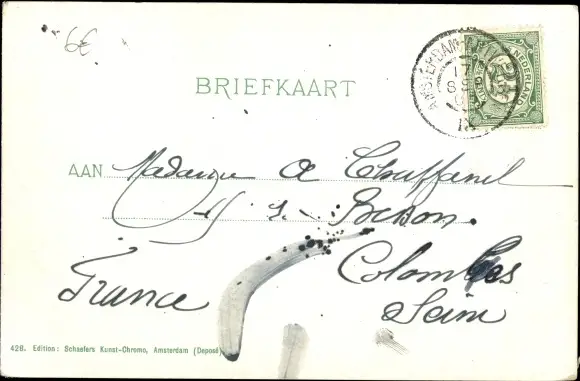 6€
BRIEFKAART
AMSTERDAM
17
NEDERLAND
2½
AAN Madame A Chuffanel
Besson.
Colombes
France
Seine
428. Edition: Schaefers Kunst-Chromo, Amsterdam (Deposé)